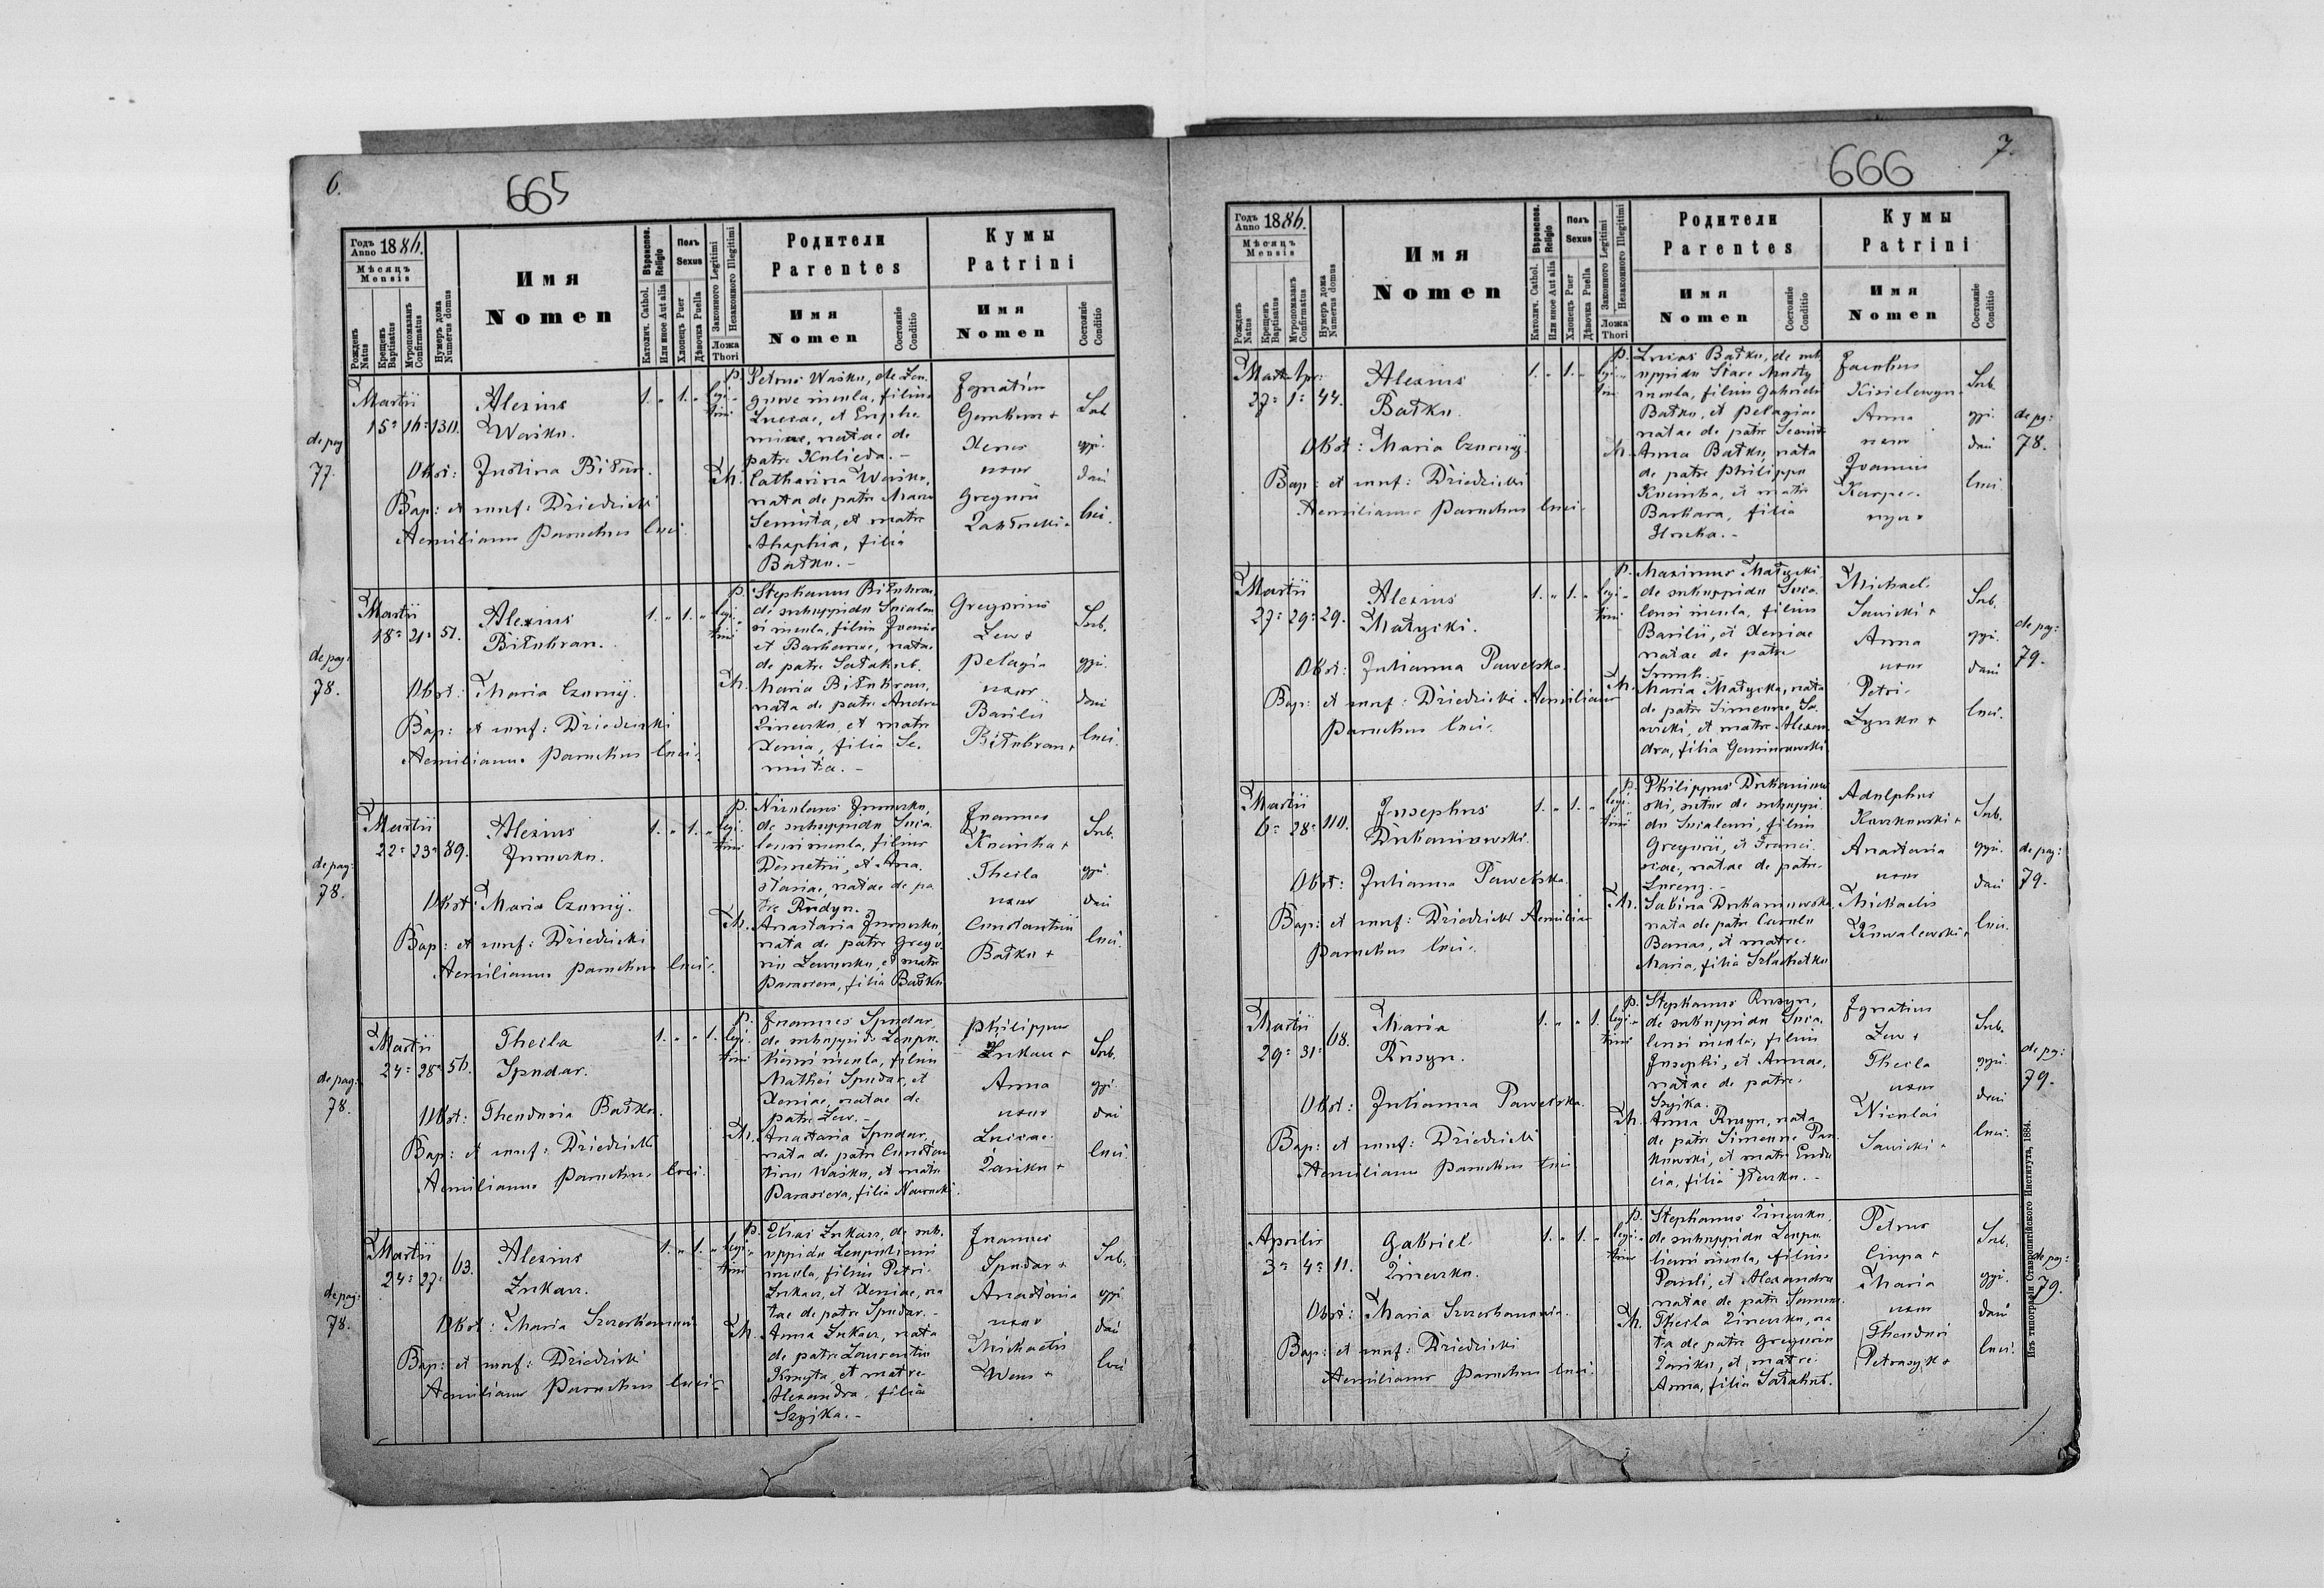 6.
665
Годъ Anno 1886.
Мѣсяцъ Mensis
Рожденъ Natus
Крещенъ Baptisatus
Мѵропомазанъ Confirmatus
Нумеръ дома Numerus domus
Имя Nomen
Вѣроиспов. Religio
Католич. Cathol.
Или иное Aut alia
Полъ Sexus
Хлопецъ Puer
Дѣвочка Puella
Законного Legitimi
Незаконного Illegitimi
Ложа Thori
Родители Parentes
Имя Nomen
Состоянiе Conditio
Кумы Patrini
Имя Nomen
Состоянiе Conditio
de pag
77.
Martii
15 16 130.
Alexius
Waśko.
Obst: Justina Biłan.
Bap: et conf: Dziedzicki
Aemilianus Parochus loci.
1. „ 1. „ legitimi
P. Petrus Waśko, de
incola, filius
Lucae, et Euphe-
miae, natae de
patre Kulieda. –
M. Catharina Waśko,
nata de patre Marco
Semuta, et matre
Ahaphia, filia
Batko. –
Ignatius
Gemkow +
Xenia
uxor
Gregorii
Sub
opi
dani
loci.
de pag:
78.
Martii
18 21 51.
Alexius
Biłobran.
Obst: Maria Czornij.
Bap: et conf: Dziedzicki
Aemilianus Parochus loci.
1. „ 1. „ legitimi
P. Stephanus Biłobran,
de suboppido Socialen
si incola, filius Joannis
et Barbarae, natae
de patre Sałakub.
M. Maria Biłobran,
nata de patre Andrea
Zinewko, et matre
Xenia, filia Se-
muta. –
Gregorius
Lew +
Pelagia
uxor
Basilii
Biłobran +
Sub.
opi.
dani
loci.
de pag:
78.
Martii
22 23 89.
Alexius
Obst: Maria Czornij.
Bap: et conf: Dziedzicki
Aemilianus Parochus loci.
1. „ 1. „ legitimi
P. Nicolaus
de suboppido Socia-
lensi incola, filius
Demetrii, et Ana-
stasiae, natae de pa
tre Rudyn.
M. Anastasia
nata de patre Grego-
rio Lewusko, et matre
Parasceva, filia Batko
Joannes
Kocimba +
Thecla
uxor
Constantini
Batko +
Sub.
opi.
dani
loci.
de pag:
78.
Martii
24 28 56.
Thecla
Spodar.
Obst: Theodosia Batko.
Bap: et conf: Dziedzicki
Aemilianus Parochus loci.
1. „ „ 1. legitimi
P. Joannes Spodar,
de suboppido Leopo-
liensi incola, filius
Mathei Spodar, et
Xeniae, natae de
patre Lew. –
M. Anastasia Spodar,
nata de patre Constan
tino Waśko, et matre
Parasceva, filia Nawrocki.
Philippus
Lukasz +
Anna
uxor
Lucae
Zasiko +
Sub.
opi.
dani
loci.
de pag:
78.
Martii
24 27 63.
Alexius
Lukasz.
Obst: Maria Szczerbanewicz
Bap: et conf: Dziedzicki
Aemilianus Parochus loci.
1. „ 1. „ legitimi
P. Elias Lukasz, de sub-
oppido Leopoliensi
incola, filius Petri
Lukasz, et Xeniae, na
tae de patre Spodar. –
M. Anna Lukasz, nata
de patre Laurentio
Kmyta, et matre
Alexandra, filia
Szyjka. –
Joannes
Spodar +
Anastasia
uxor
Michaelis
Wons +
Sub.
opi
dani
loci
666
7.
Годъ Anno 1886.
Мѣсяцъ Mensis
Рожденъ Natus
Крещенъ Baptisatus
Мѵропомазанъ Confirmatus
Нумеръ дома Numerus domus
Имя Nomen
Вѣроиспов. Religio
Католич. Cathol.
Или иное Aut alia
Полъ Sexus
Хлопецъ Puer
Дѣвочка Puella
Законного Legitimi
Незаконного Illegitimi
Ложа Thori
Родители Parentes
Имя Nomen
Состоянiе Conditio
Кумы Patrini
Имя Nomen
Состоянiе Conditio
Mart. Apr:
27 1 44.
Alexius
Batko.
Obst: Maria Czornij.
Bap: et conf: Dziedzicki
Aemilianus Parochus loci.
1. „ 1. „ legitimi
P. Lucas Batko, de sub
oppido Stare Miasty
incola, filius Gabrieli
Batko, et Pelagiae
natae de patre Semuta
M. Anna Batko, nata
de patre Philippo
Kocimba, et matre
Barbara, filia
Hocka. –
Jacobus
Kisielewycz +
Anna
uxor
Joannis
Karpe-
Sub.
opi.
dani
loci.
de pg:
78.
Martii
27 29 29.
Alexius
Matycki.
Obst: Julianna Pawelska.
Bap: et conf: Dziedzicki Aemilianus
Parochus loci.
1. „ 1. „ legitimi
P. Maximus Matycki,
de suboppido Socia-
lensi incola, filius
Basilii, et Xeniae
natae de patre
M. Maria Matycka, nata
de patre Simeone Sa-
wicki, et matre Alexan
dra, filia
Michael
Sawicki +
Anna
uxor
Petri
Zynko +
Sub.
opi.
dani
loci.
de pg:
79.
Martii
6 28 110.
Josephus
Drohaniowski.
Obst: Julianna Pawelska.
Bap: et conf: Dziedzicki Aemilian
Parochus loci.
1. „ 1. „ legitimi
P. Philippus Drohaniow
ski, sutor de suboppi-
do Socialensi, filius
Gregorii, et Franci-
scae, natae de patre
Lorenz. –
M. Sabina Drohaniowska,
nata de patre Carolo
Banas, et matre
Maria, filia Szlachetko
Adolphus
Kaszkowski +
Anastasia
uxor
Michaelis
Kowalewski +
Sub.
opi.
dani
loci.
de pag:
79.
Martii
29 31 68.
Maria
Rusyn.
Obst: Julianna Pawelska.
Bap: et conf: Dziedzicki
Aemilianus Parochus loci
1. „ „ 1. legitimi
P. Stephanus Rusyn,
de suboppido Socia-
lensi incola, filius
Josephi, et Annae,
natae de patre
Szyjka. –
M. Anna Rusyn, nata
de patre Simeone Pan
kowski, et matre Eudo
cia, filia
Ignatius
Lew +
Thecla
uxor
Nicolai
Sawicki +
Sub.
opi.
dani
loci.
de pg:
79.
Aprilis
3 4 11.
Gabriel
Zinewko.
Obst: Maria Szczerbanewicz.
Bap: et conf: Dziedzicki
Aemilianus Parochus loci.
1. „ 1. „ legitimi
P. Stephanus Zinewko,
de suboppido Leopo-
liensi incola, filius
Pauli, et Alexandra
natae de patre
M. Thecla Zinewko, na
ta de patre Gregorio
Zasiko, et matre
Anna, filia Sałakub.
Petrus
Ciupa +
Maria
uxor
Theodori
Petrasyk +
Sub.
opi.
dani
loci.
de pag:
79.
Изъ типографiи Ставропигiйского Института, 1884.